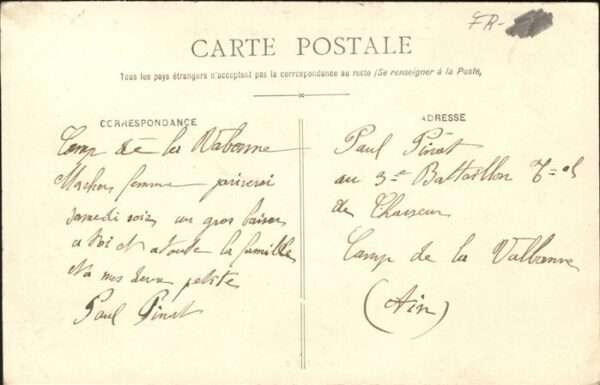 FR-
CARTE POSTALE
Tous les pays étrangers n'acceptent pas la correspondance au recto (Se renseigner à la Poste,
CORRESPONDANCE
Camp de la Valbonne
femme
samedi soir un gros baiser
a toi et a toute la famille
et a mes deux petite
Paul Pinot
ADRESSE
Paul Pinot
au 3=e Battaillon
de Chasseur
Camp de la Valbonne
(Ain)